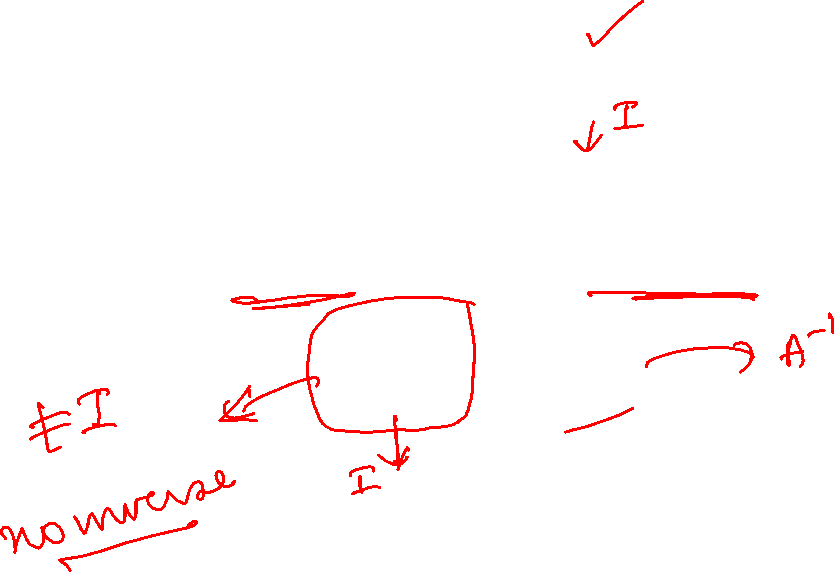 I
A⁻¹
≠ I
I
no inverse